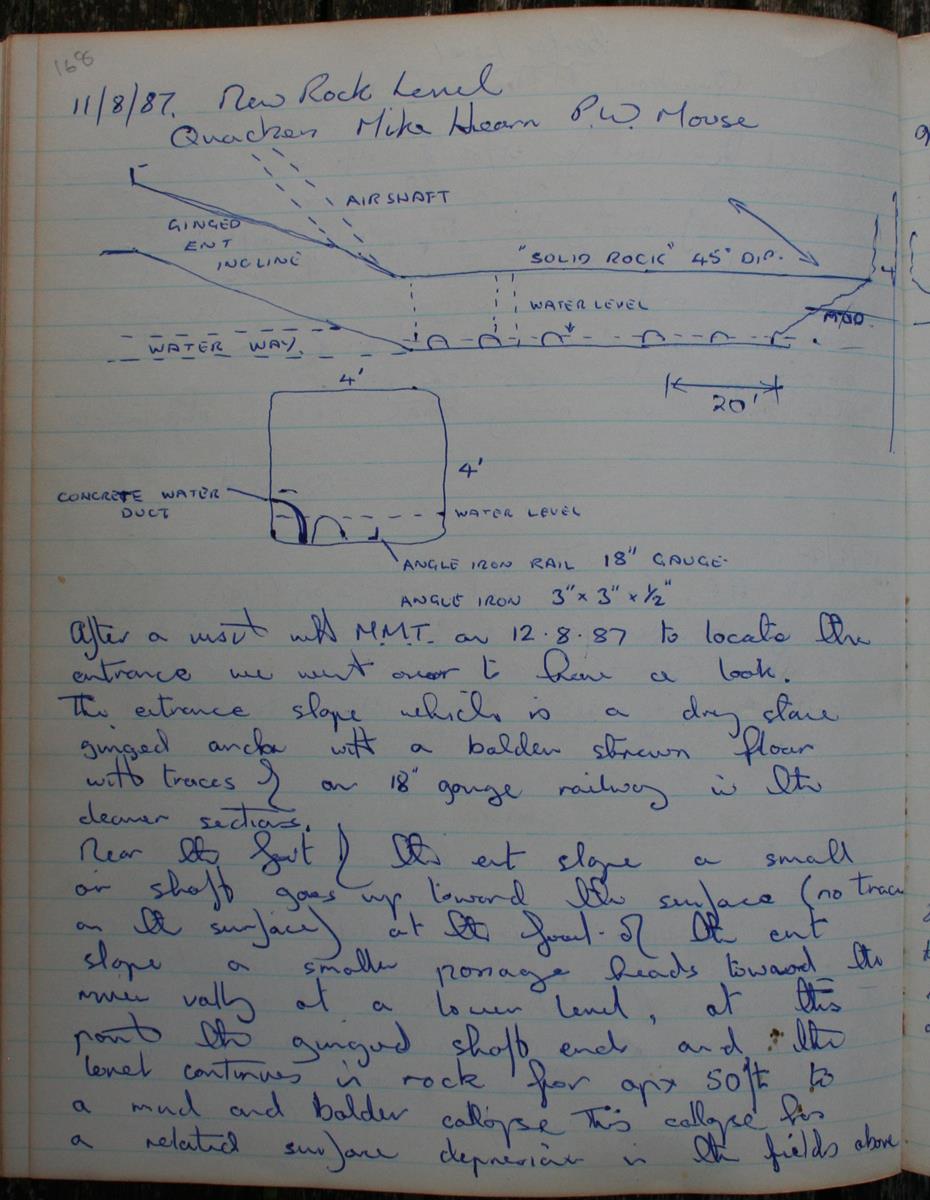 168
11/8/87. New Rock Level
Quackers Mike Hearn P.W. Mouse
AIRSHAFT
GINGED
ENT
INCLINE
"SOLID ROCK" 45° DIP.
WATER LEVEL
MUD
WATER WAY.
20'
4'
4'
CONCRETE WATER
DUCT
WATER LEVEL
ANGLE IRON RAIL 18" GAUGE.
ANGLE IRON 3" x 3" x 1/2"
After a visit with M.M.T. on 12.8.87 to locate the
entrance we went over to have a look.
The entrance slope which is a dry stone
ginged with a bolder strewn floor
with traces of an 18" gauge railway in the
cleaner sections.
Near the foot of the ent slope a small
air shaft goes up toward the surface (no trace
on the surface) at the foot of the ent
slope a smaller passage heads toward the
river vally at a lower level, at this
point the ginged shaft ends and the
level continues in rock for apx 50ft to
a mud and bolder collapse This collapse has
a related surface depression in the fields above